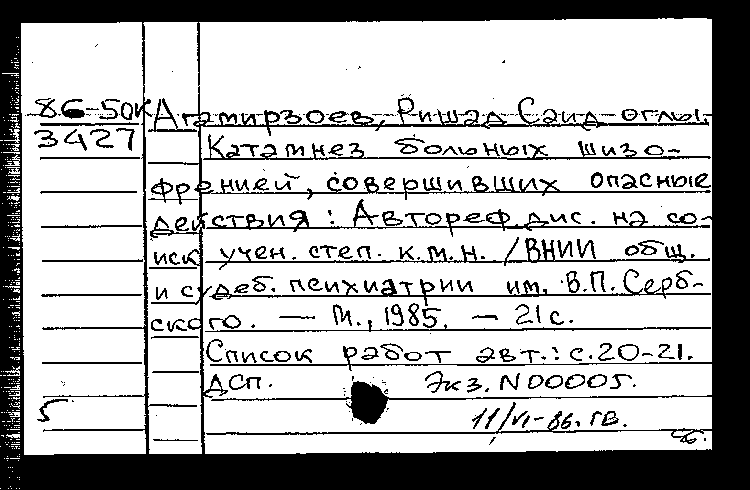 86-50к
3427
Агамирзоев, Ришад Саид-оглы.
Катамнез больных шизо-
френией, совершивших опасные
действия: Автореф. дис. на со-
иск учен. степ. к.м.н. /ВНИИ общ.
и судеб. психиатрии им. В.П. Серб-
ского. — М., 1985. — 21 с.
Список работ авт.: с. 20-21.
ДСП. Экз. N 00005.
5
11/VI-86. ГВ.